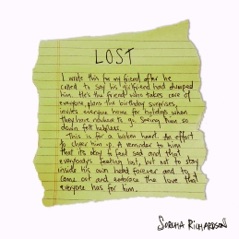 LOST
I wrote this for my friend after he
called to say his girlfriend had dumped
him. He's the friend who takes care of
everyone, plans the birthday surprises,
invites everyone home for holidays when
they have nowhere to go. Seeing him so
down felt helpless.
This is for a broken heart. An effort
to cheer him up. A reminder to him
that its okay to feel sad and that
everybody's feeling lost, but not to stay
inside his own head forever and to
come out and embrace the love that
everyone has for him.
RICHARDSON